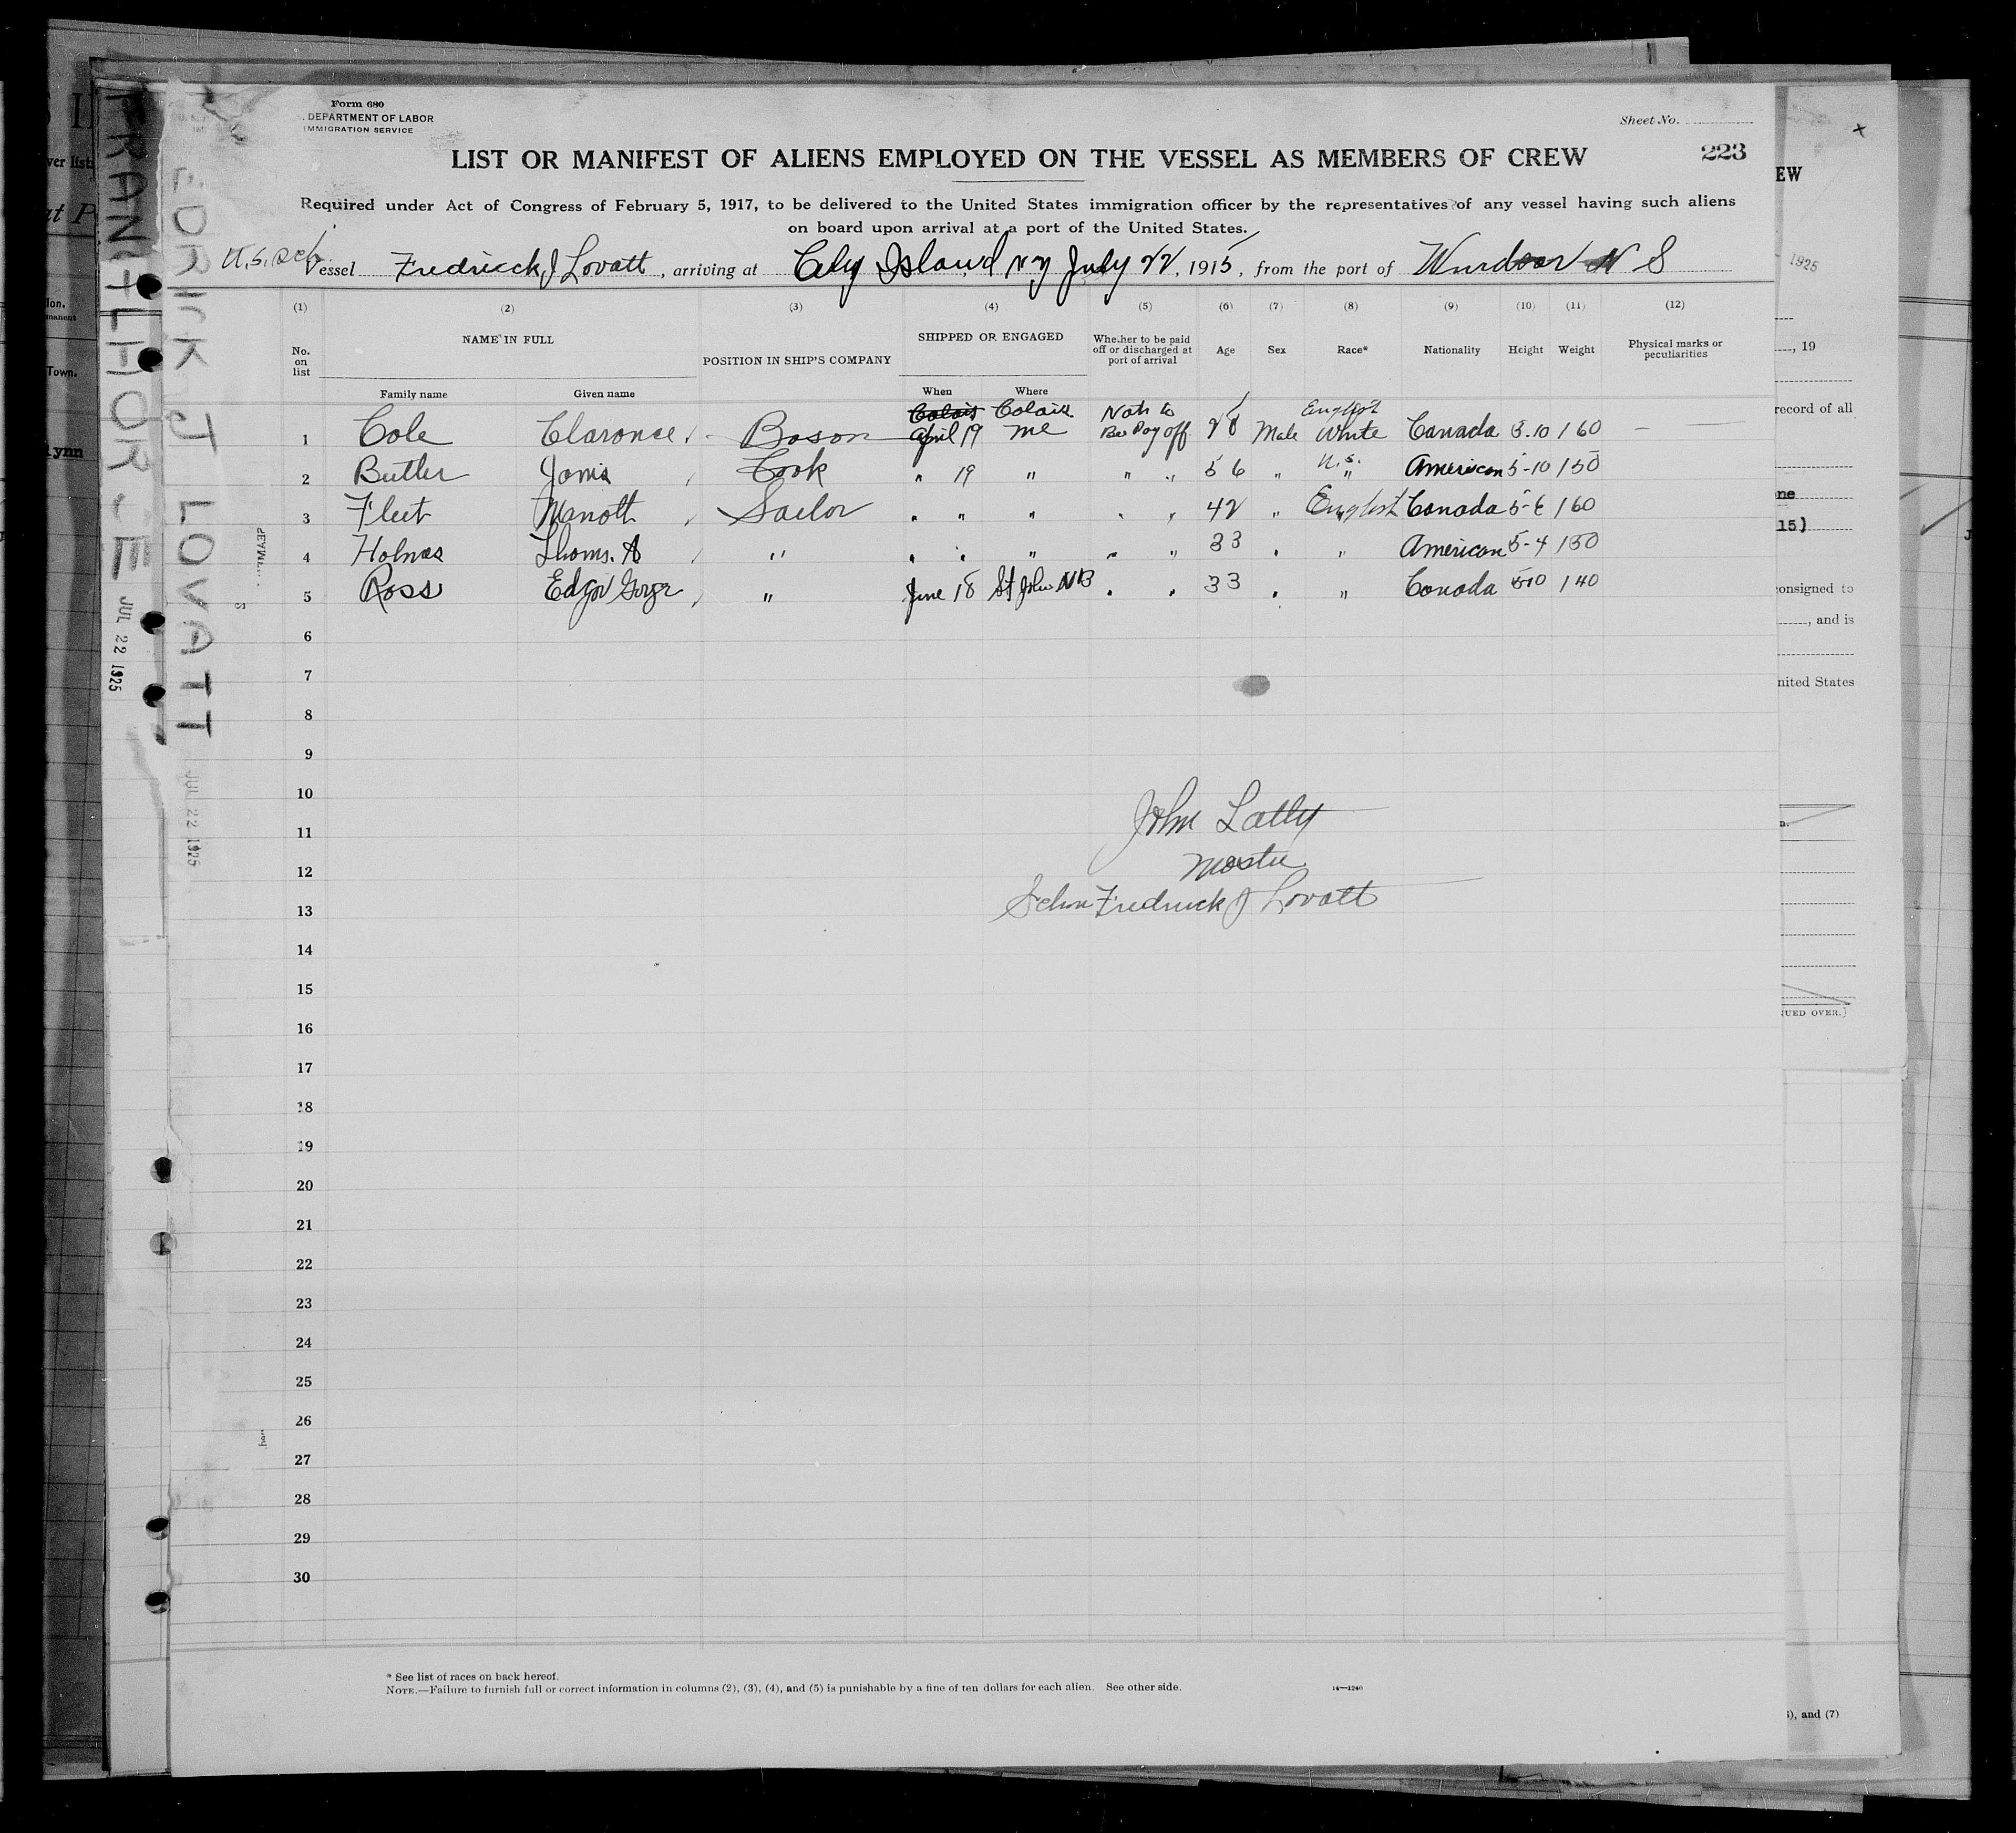 Form 680
. DEPARTMENT OF LABOR
IMMIGRATION SERVICE
Sheet No.
LIST OR MANIFEST OF ALIENS EMPLOYED ON THE VESSEL AS MEMBERS OF CREW
223
Required under Act of Congress of February 5, 1917, to be delivered to the United States immigration officer by the representatives of any vessel having such aliens
on board upon arrival at a port of the United States.
U.S. Sch Vessel Fredrieck J Lovatt, arriving at City Island NY July 22, 1915, from the port of Windsor N S
(1) (2) (3) (4) (5) (6) (7) (8) (9) (10) (11) (12)
No. on list NAME IN FULL POSITION IN SHIP'S COMPANY SHIPPED OR ENGAGED Whether to be paid off or discharged at port of arrival Age Sex Race* Nationality Height Weight Physical marks or peculiarities
Family name Given name When Where
Calais Calais Not to English
1 Cole Clarence Boson April 19 Me Be Pay off 28 Male White Canada 5-10 160 —
2 Butler Cook " 19 " " " 56 " U.S. " American 5-10 150
3 Fleet Sailor " " " " " 42 " English Canada 5-6 160
4 Holmes Thoms. A " " " " " " 33 " " American 5-4 150
5 Ross Edgar " June 18 St John NB " " 33 " " Canada 5-10 140
6
7
8
9
10
11
12
13
14
15
16
17
18
19
20
21
22
23
24
25
26
27
28
29
30
John Lally
Master
Schn Fredrick J Lovatt
* See list of races on back hereof.
NOTE.—Failure to furnish full or correct information in columns (2), (3), (4), and (5) is punishable by a fine of ten dollars for each alien. See other side.
14—1240
EDRICK J LOVATT
JUL 22 1925
JUL 22 1925
EW
1925
, 19
record of all
15)
consigned to
, and is
nited States
UED OVER.]
), and (7)
ver list
Town.
lynn